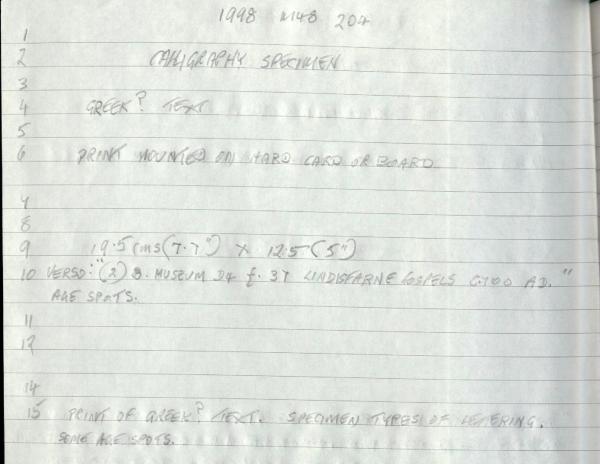 1998 M48 204
1
2 CALLIGRAPHY SPECIMEN
3
4 GREEK? TEXT
5
6 PRINT MOUNTED ON HARD CARD OR BOARD
7
8
9 19.5 cms (7.7") X 12.5 (5")
10 VERSO: "(2) B. MUSEUM D4 f. 37 LINDISFARNE GOSPELS C.700 AD."
AGE SPOTS.
11
12
14
15 PRINT OF GREEK? TEXT. SPECIMEN TYPES OF LETTERING.
SOME AGE SPOTS.